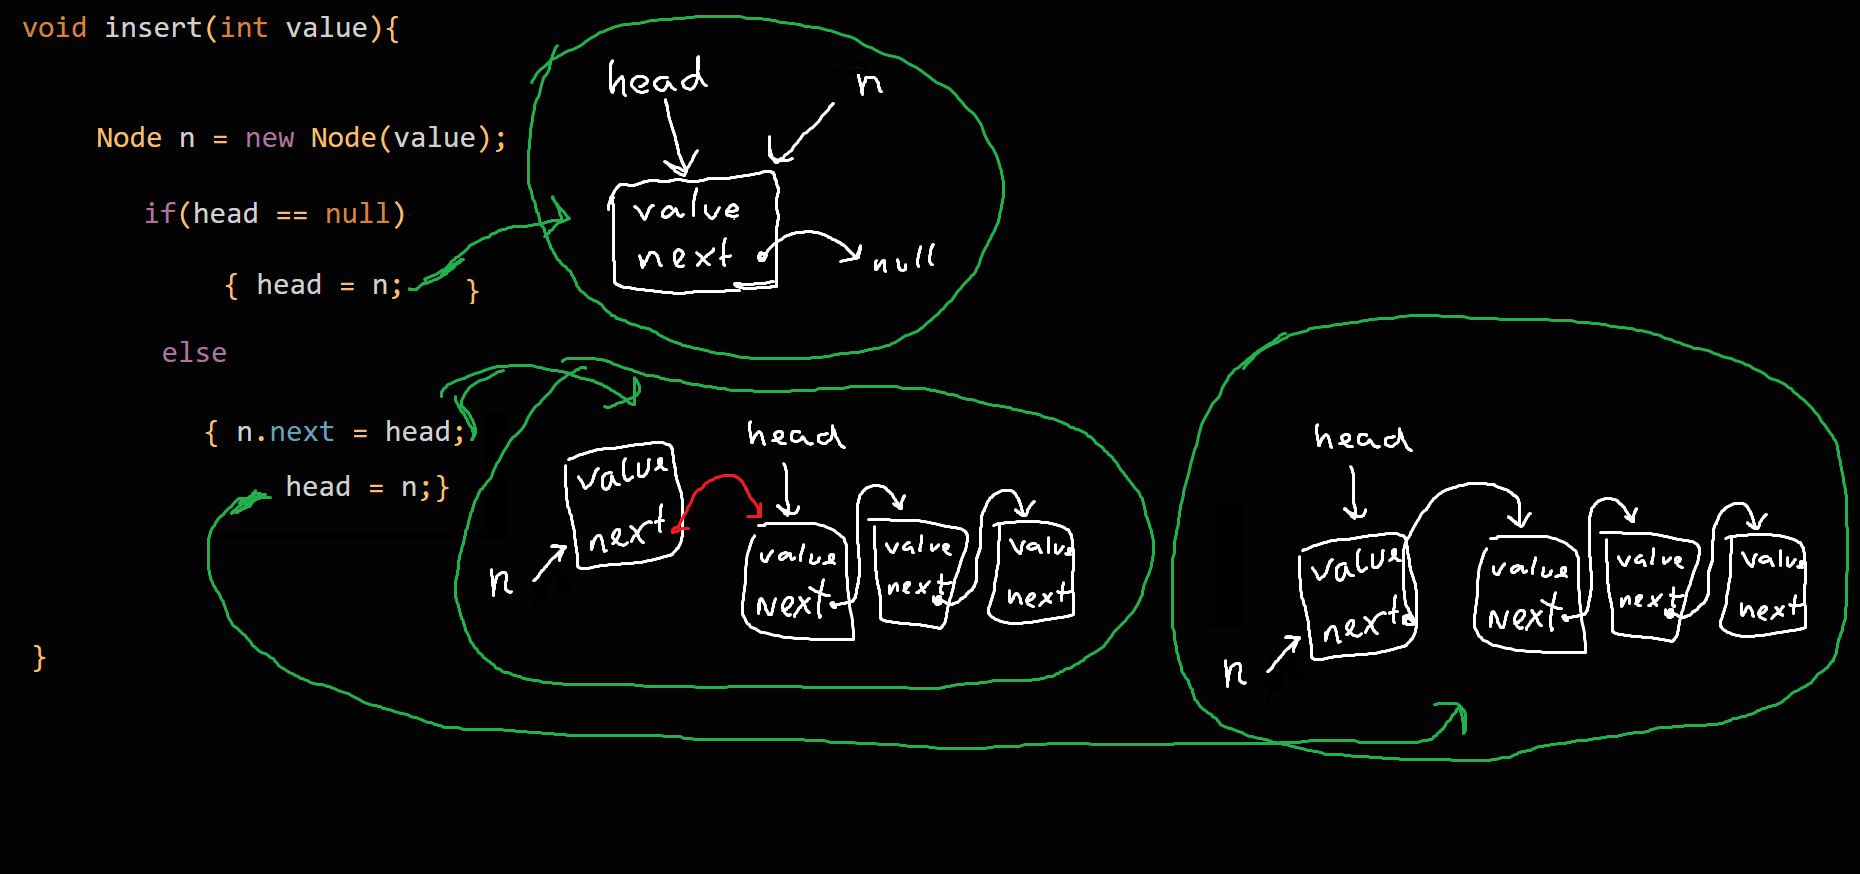 void insert(int value){
Node n = new Node(value);
if(head == null)
{ head = n; }
else
{ n.next = head;
head = n;}
}
head n
value
next null
head
value
next
n
value value value
next next next
head
value
next
n
value value value
next next next